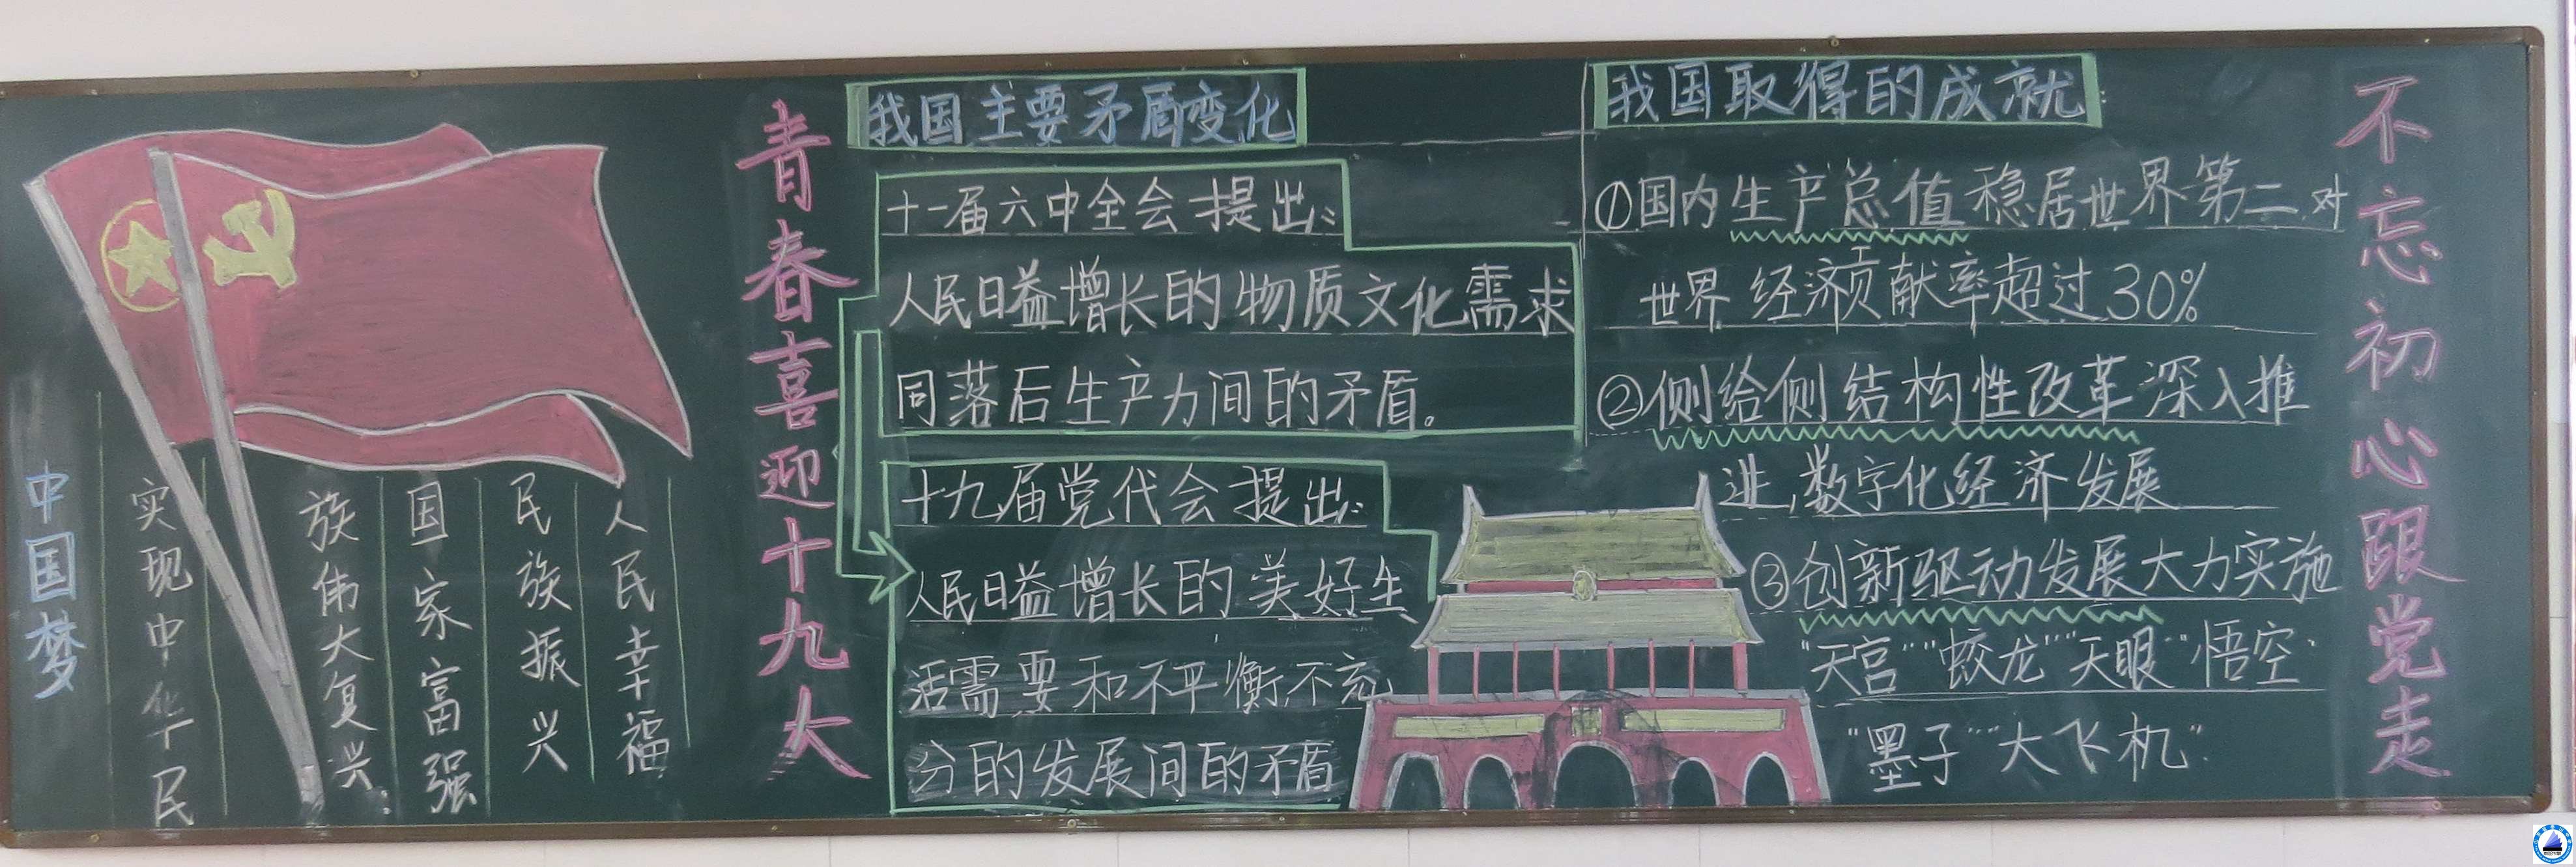 中国梦
实现中华民
族伟大复兴:
国家富强
民族振兴
人民幸福
青春喜迎十九大
我国主要矛盾变化
十一届六中全会提出:
人民日益增长的物质文化需求
同落后生产力间的矛盾。
十九届党代会提出:
人民日益增长的美好生
活需要和不平衡,不充
分的发展间的矛盾
我国取得的成就:
①国内生产总值稳居世界第二,对
世界经济贡献率超过30%
②侧给侧结构性改革深入推
进,数字化经济发展
③创新驱动发展大力实施
“天宫”“蛟龙”“天眼”“悟空”
“墨子”“大飞机”
不忘初心跟党走